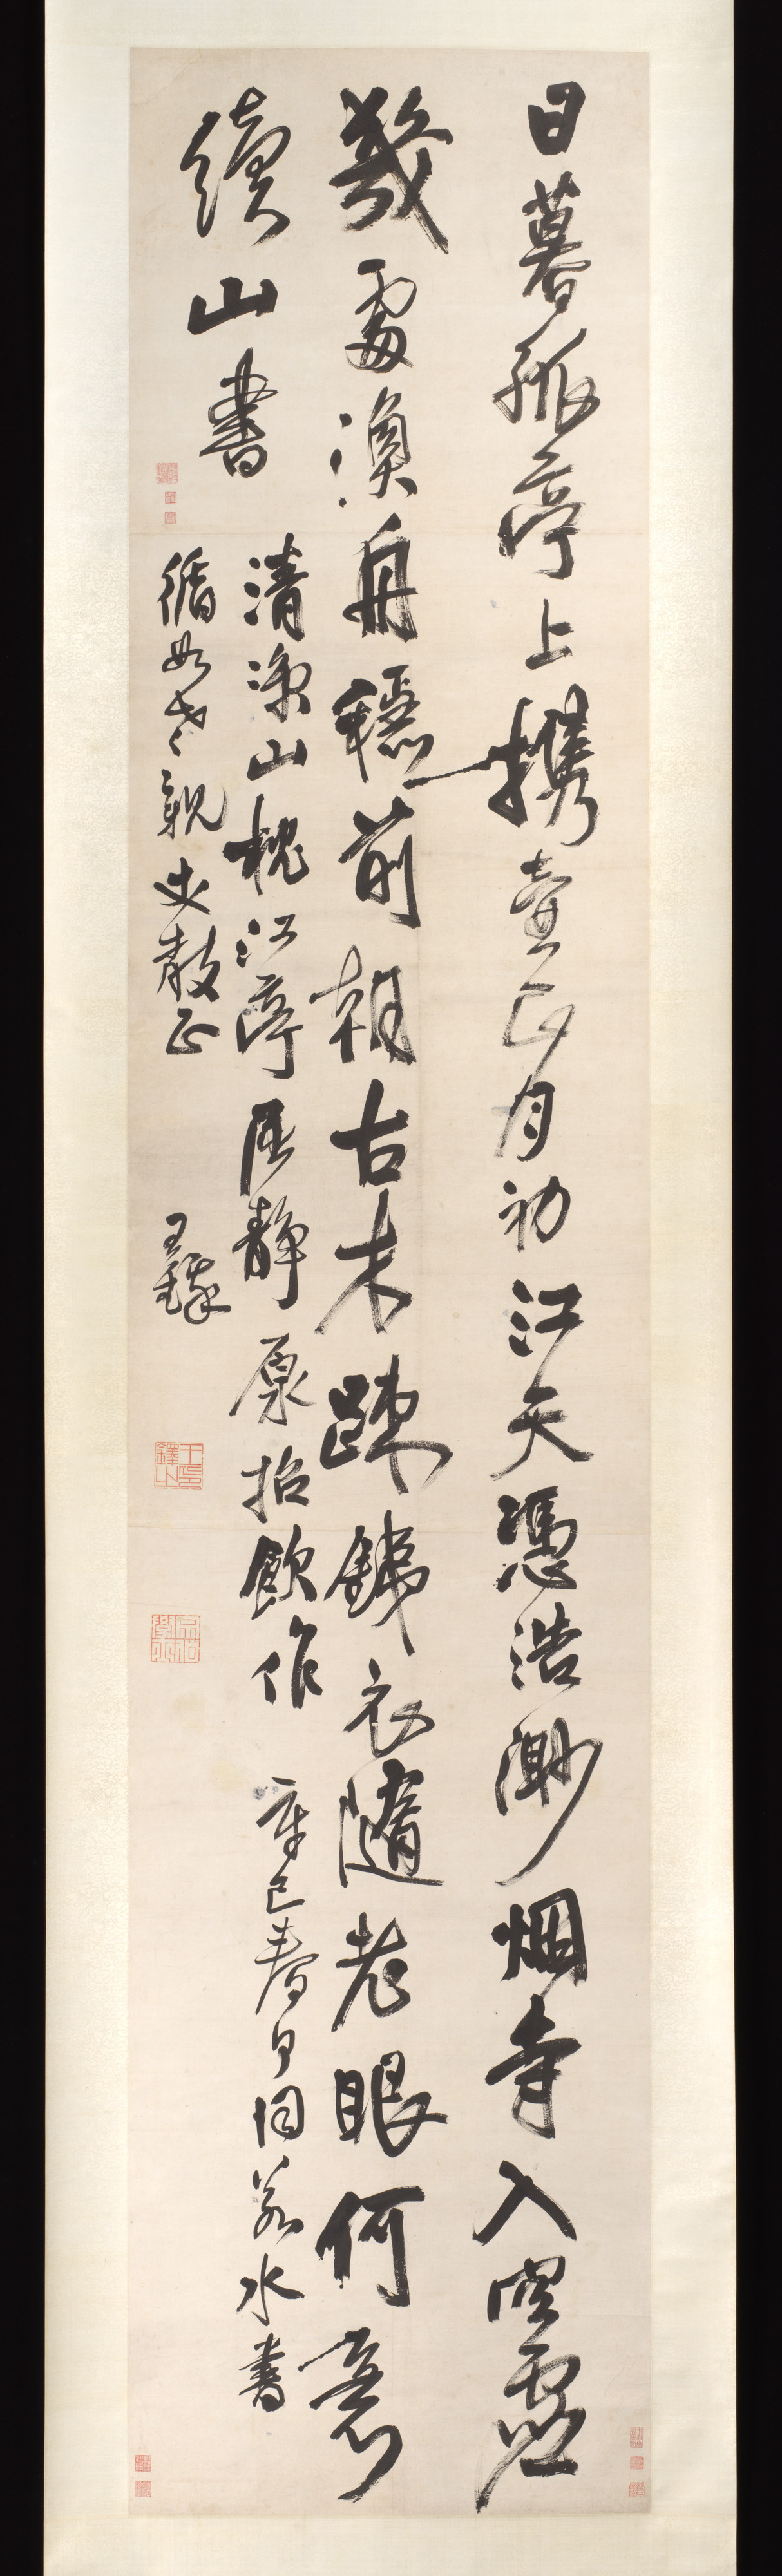 日暮孤亭上携壺正月初江天憑浩渺烟寺入空虛
幾處漁舟穩前朝古木疎銕衣隨老眼何意
續山書
清涼山枕江亭居靜原招飲作 辛巳春日同若水書
循如老親丈教正 王鐸
王鐸之印
宗伯學士